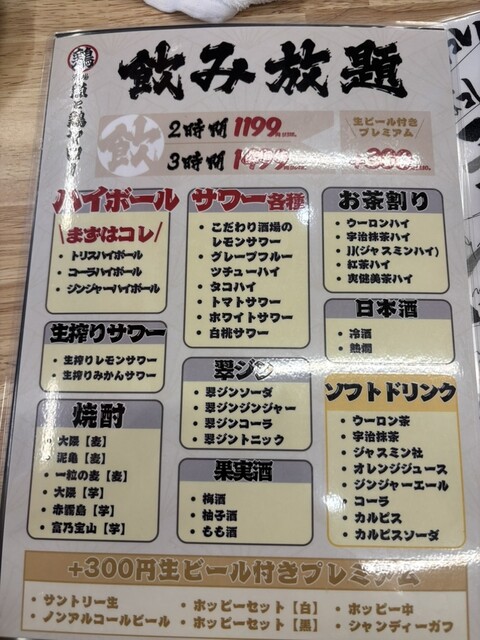 飲み放題
2時間 1199円
3時間 1499円
生ビール付き
プレミアム
+300円
飲
ハイボール
\まずはコレ/
・トリスハイボール
・コーラハイボール
・ジンジャーハイボール
生搾りサワー
・生搾りレモンサワー
・生搾りみかんサワー
焼酎
・大隈【麦】
・泥亀【麦】
・一粒の麦【麦】
・大隈【芋】
・赤霧島【芋】
・富乃宝山【芋】
サワー各種
・こだわり酒場の
レモンサワー
・グレープフルー
ツチューハイ
・タコハイ
・トマトサワー
・ホワイトサワー
・白桃サワー
翠ジン
・翠ジンソーダ
・翠ジンジンジャー
・翠ジンコーラ
・翠ジントニック
果実酒
・梅酒
・柚子酒
・もも酒
お茶割り
・ウーロンハイ
・宇治抹茶ハイ
・JJ(ジャスミンハイ)
・紅茶ハイ
・爽健美茶ハイ
日本酒
・冷酒
・熱燗
ソフトドリンク
・ウーロン茶
・宇治抹茶
・ジャスミン社
・オレンジジュース
・ジンジャーエール
・コーラ
・カルピス
・カルピスソーダ
+300円生ビール付きプレミアム
・サントリー生
・ノンアルコールビール
・ホッピーセット【白】
・ホッピーセット【黒】
・ホッピー中
・シャンディーガフ